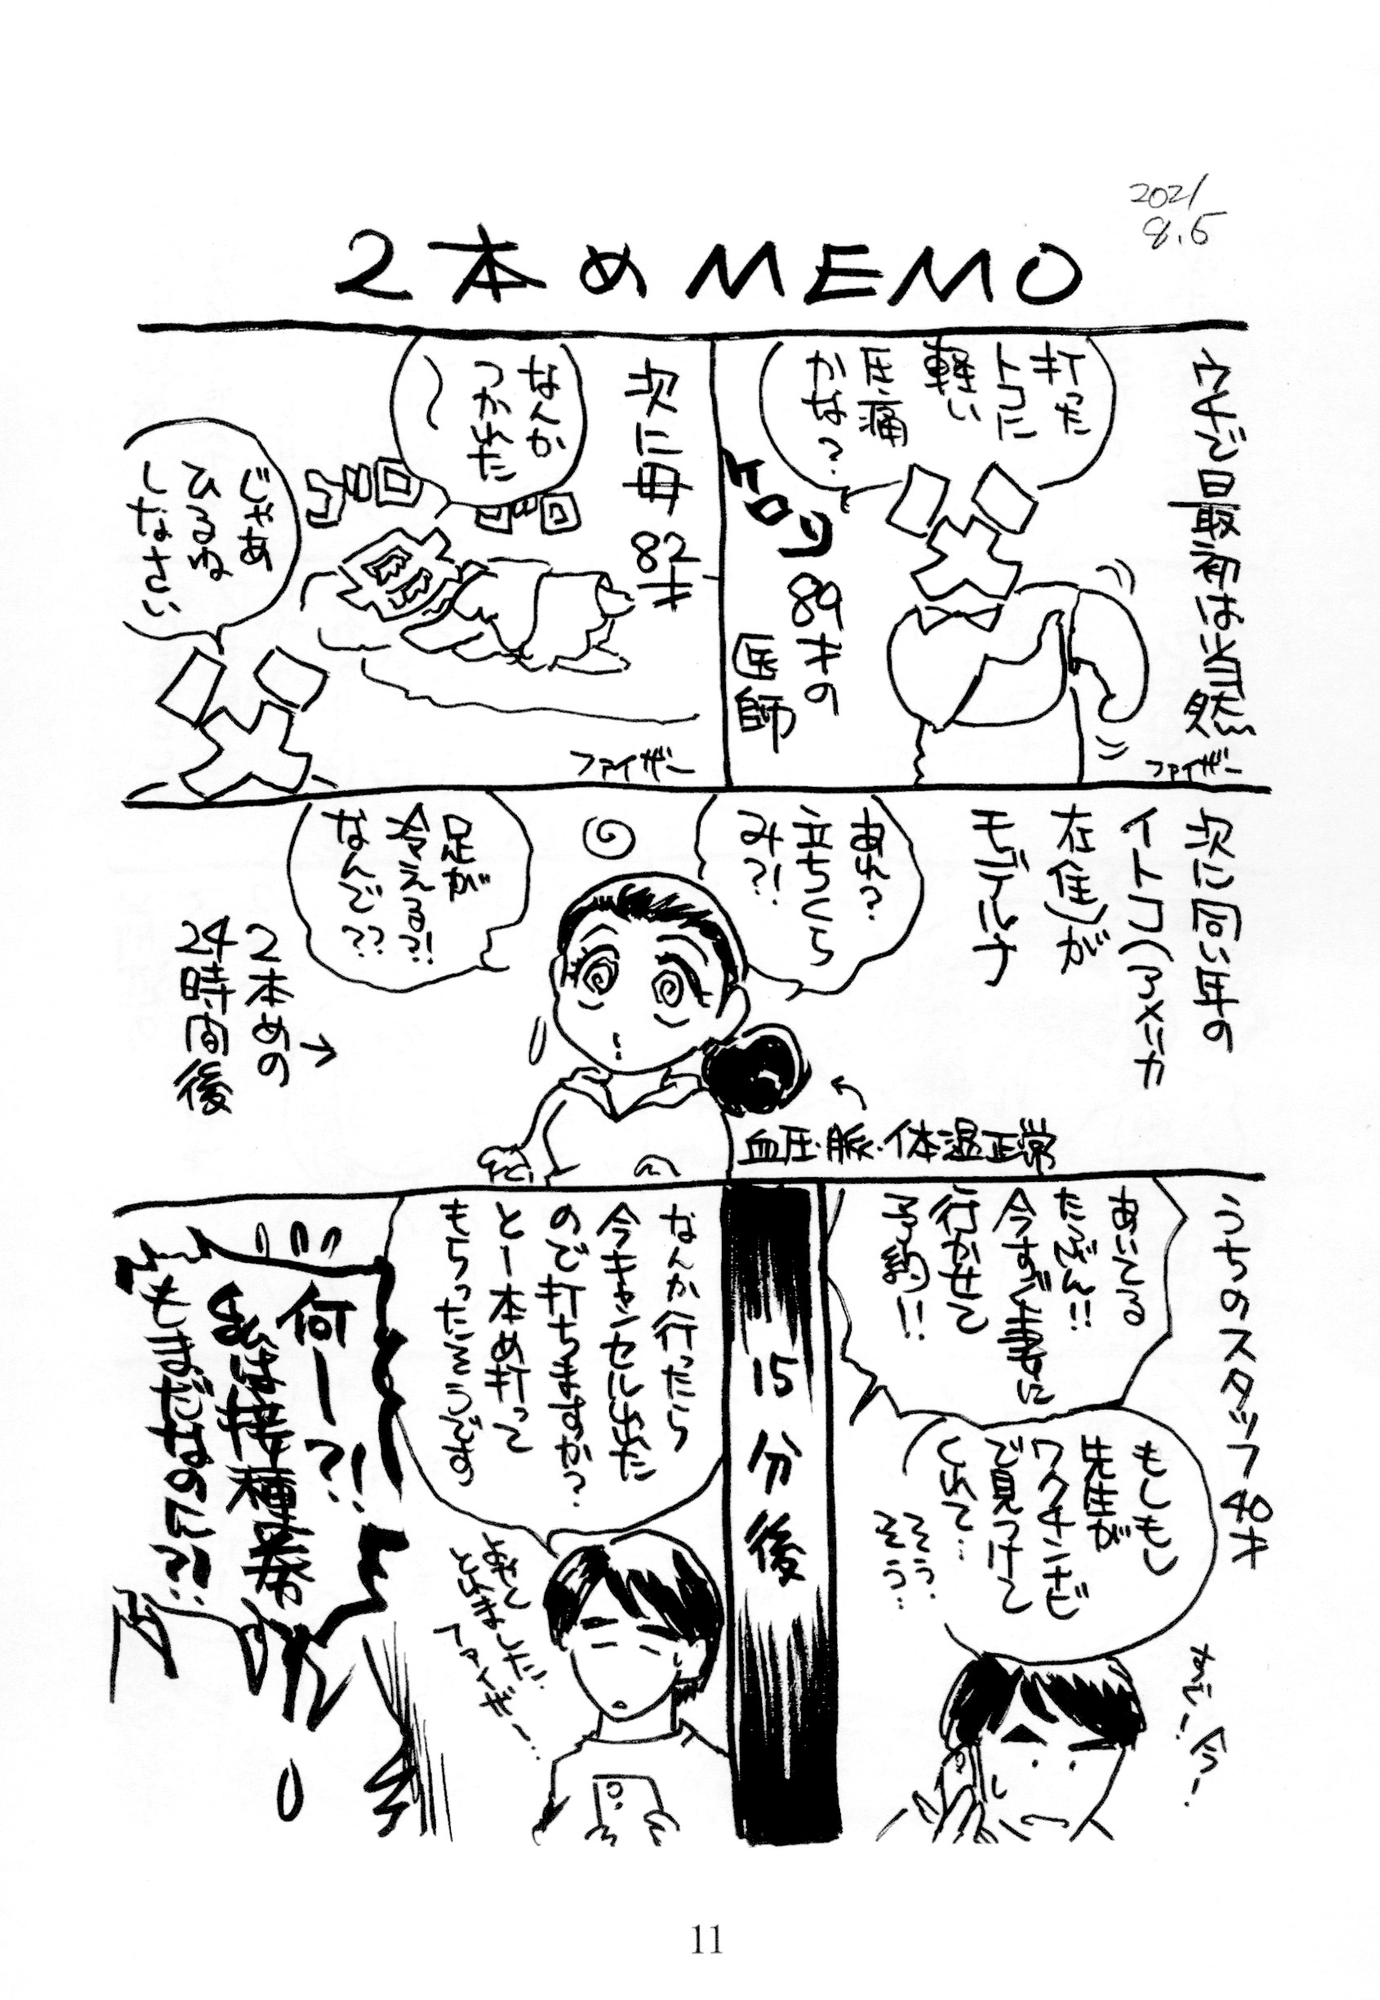 2021
8.5
2本めMEMO
ウチで最初は当然
打った
トコに
軽い
圧痛
かな?
ケロリ
89才の
医師
ファイザー
次に母
82才
なんか
つかれた
〜
じゃあ
ひるね
しなさい
ファイザー
次に同い年の
イトコ(アメリカ
在住)が
モデルナ
あれ?
立ちくら
み?!
血圧・脈・体温正常
足が
冷える?!
なんで??
2本めの
24時間後
うちのスタッフ40才
あいてる
たぶん!!
今すぐ妻に
行かせて
予約!!
もしもし
先生が
ワクチンナビ
で見つけて
くれて…
そう…
そう…
すぐ!
今!
15分後
なんか行ったら
今キャンセル出た
ので打ちますか?
と一本め打って
もらったそうです
よやく
とれました
ファイザー…
何ー?!
私は接種券
もまだなのに?!
11